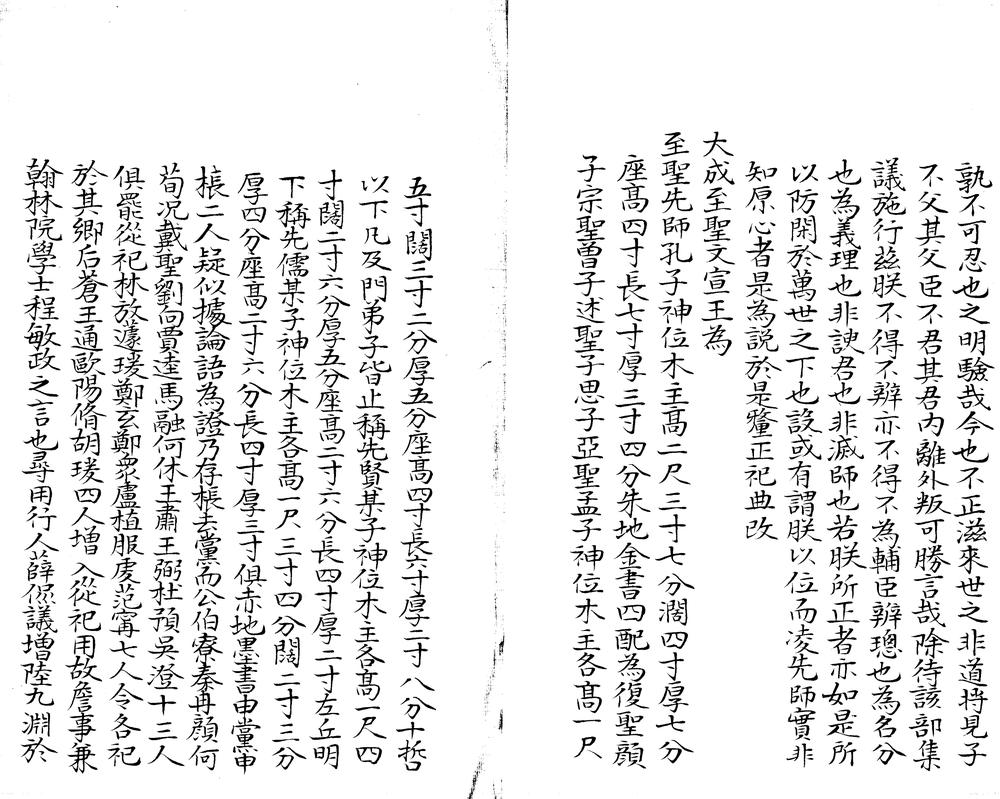 孰不可忍也之明驗哉今也不正滋來世之非道將見子
不父其父臣不君其君內離外叛可勝言哉除待該部集
議施行茲朕不得不辨亦不得不為輔臣辨璁也為名分
也為義理也非諛君也非滅師也若朕所正者亦如是所
以防閑於萬世之下也設或有謂朕以位而凌先師實非
知原心者是為說於是釐正祀典改
大成至聖文宣王為
至聖先師孔子神位木主高二尺三寸七分濶四寸厚七分
座高四寸長七寸厚三寸四分朱地金書四配為復聖顏
子宗聖曾子述聖子思子亞聖孟子神位木主各高一尺
五寸闊三寸二分厚五分座高四寸長六寸厚二寸八分十哲
以下凡及門弟子皆止稱先賢某子神位木主各高一尺四
寸闊二寸六分厚五分座高二寸六分長四寸厚二寸左丘明
下稱先儒某子神位木主各高一尺三寸四分闊二寸三分
厚四分座高二寸六分長四寸厚三寸俱赤地墨書申黨申
棖二人疑似據論語為證乃存棖去黨而公伯寮秦冉顏何
荀况戴聖劉向賈逵馬融何休王肅王弼杜預吳澄十三人
俱罷從祀林放蘧瑗鄭玄鄭眾盧植服虔范甯七人令各祀
於其鄉后蒼王通歐陽脩胡瑗四人增入從祀用故詹事兼
翰林院學士程敏政之言也尋用行人薛侃議增陸九淵於